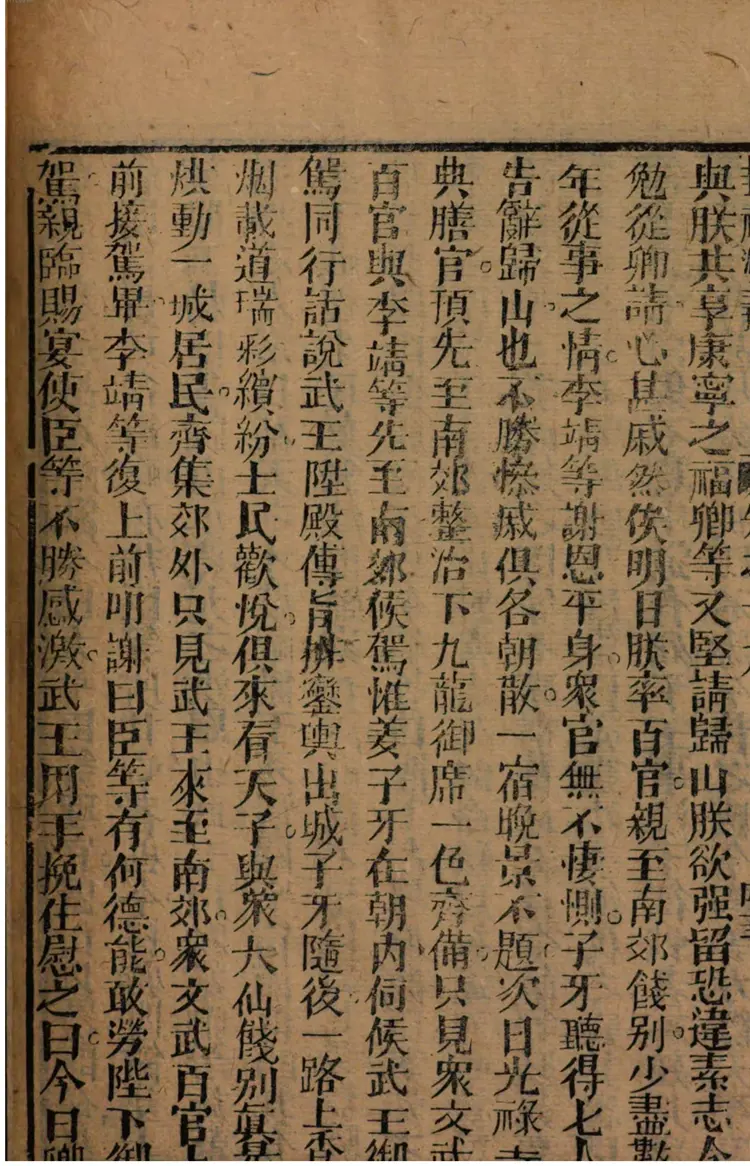 與朕共享康寧之福卿等又堅請歸山朕欲强留恐違素志今
勉從卿請。心甚戚然俟明日朕率百官。親至南郊餞别。少盡數
年從事之情。李靖等謝恩平身。衆官無不悽惻。子牙聽得七人
告辭歸山。也不勝慘戚俱各朝散。一宿晚景不題次日光祿寺
典膳官。頂先至南郊整治下九龍御席一色齊備。只見衆文武
百官與李靖等先至南郊候駕惟姜子牙在朝内。伺候武王御
駕同行話說武王陞殿傳旨排鑾輿出城子牙隨後。一路上香
烟載道瑞彩繽紛。士民歡悅。俱來看天子。與衆大仙餞别眞
烘動一城居民。齊集郊外只見武王來至南郊。衆文武百官上
前接駕畢。李靖等復上前叩謝曰臣等有何德能。敢勞陛下御
駕。親臨賜宴使臣等不勝感激。武王用手挽住慰之曰。今日卿